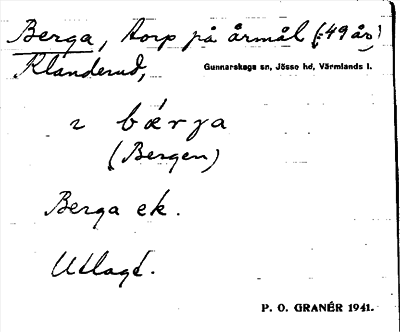 Berga, torp på årmål (:49 år)
Klanderud,
Gunnarskogs sn, Jösse hd, Värmlands l.
2 bærga
(Bergen)
Berga ek.
Utlagd.
P. O. GRANÉR 1941.